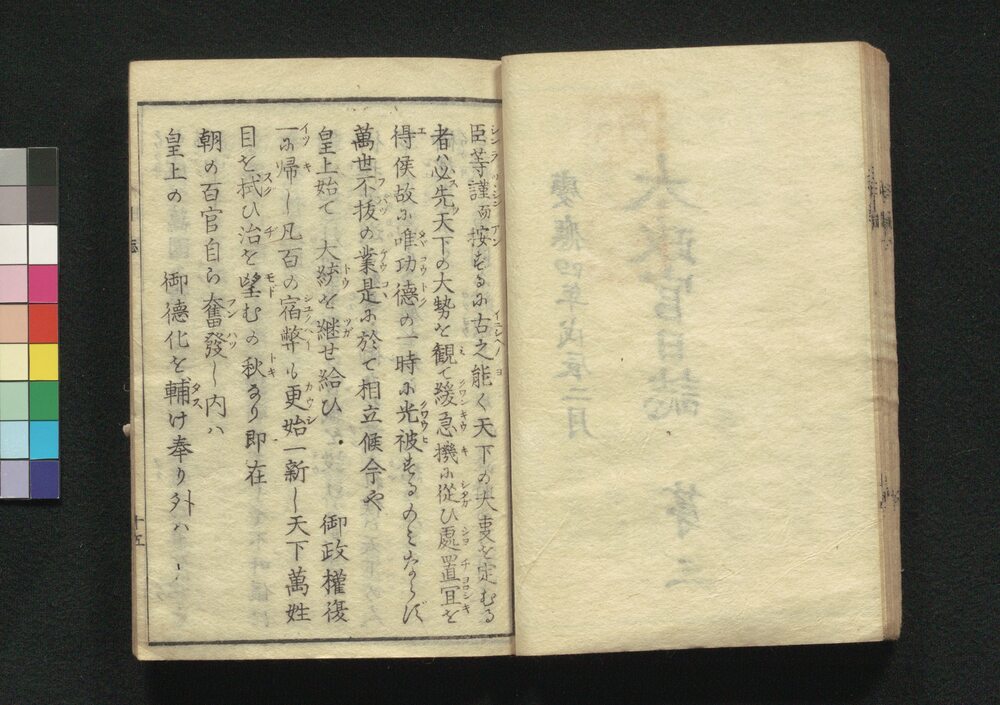 臣等謹而按るに古之能く天下の大事を定むる
者ハ必先天下の大勢を観て緩急機に從ひ處置宜を
得候故に唯功徳の一時に光被するのみならず
萬世不抜の業是に於て相立候今や
皇上始て大統を継せ給ひ 御政權復
一に帰し凡百の宿弊も更始一新し天下萬姓
目を拭ひ治を望むの秋なり即在
朝の百官自ら奮發し内ハ
皇上の 御徳化を輔け奉り外ハ
十五
太政官日誌 第三
慶應四年戊辰二月